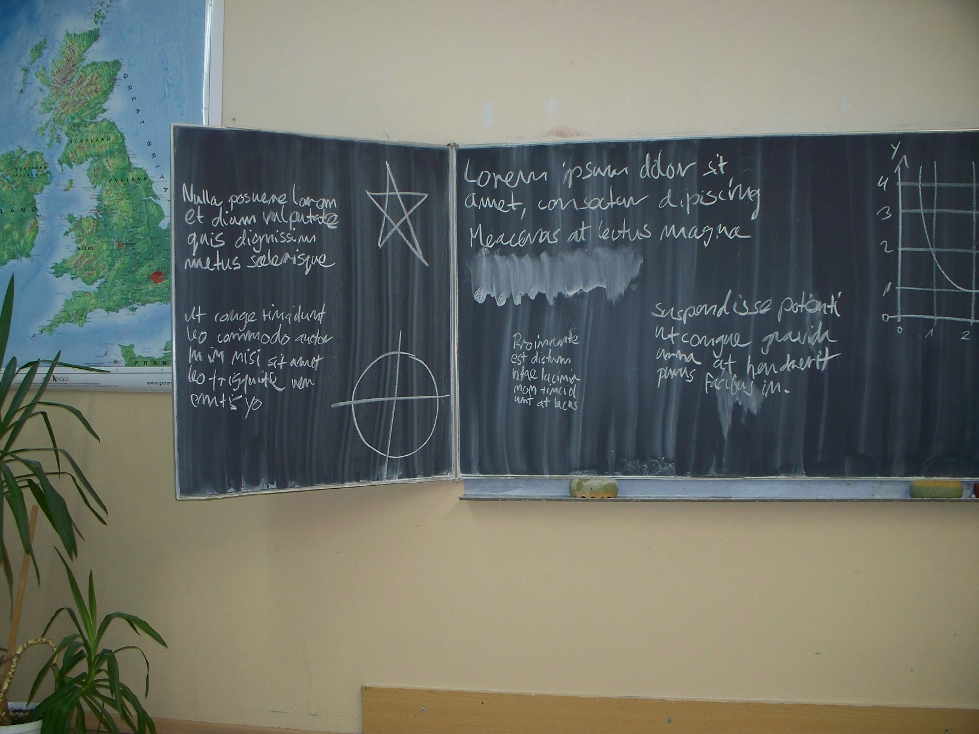 GREAT BRITA
SCOTLAND
Nulla posuere lorem
et diam vulputate
quis dignissim
metus scelerisque
ut congue tingdunt
leo commodo auctor
in in nisi sit amet
leo tristiquite
Lorem ipsum dolor sit
amet, consectur dipiscing
Meacenas at lectus magna
Proin ante
est dictum
vitae lacinia
unt at lacus
suspendisse potenti
ut congue gravida
urna at hendrerit
purus facibus in.
Y
4
3
2
1
0
0 1 2